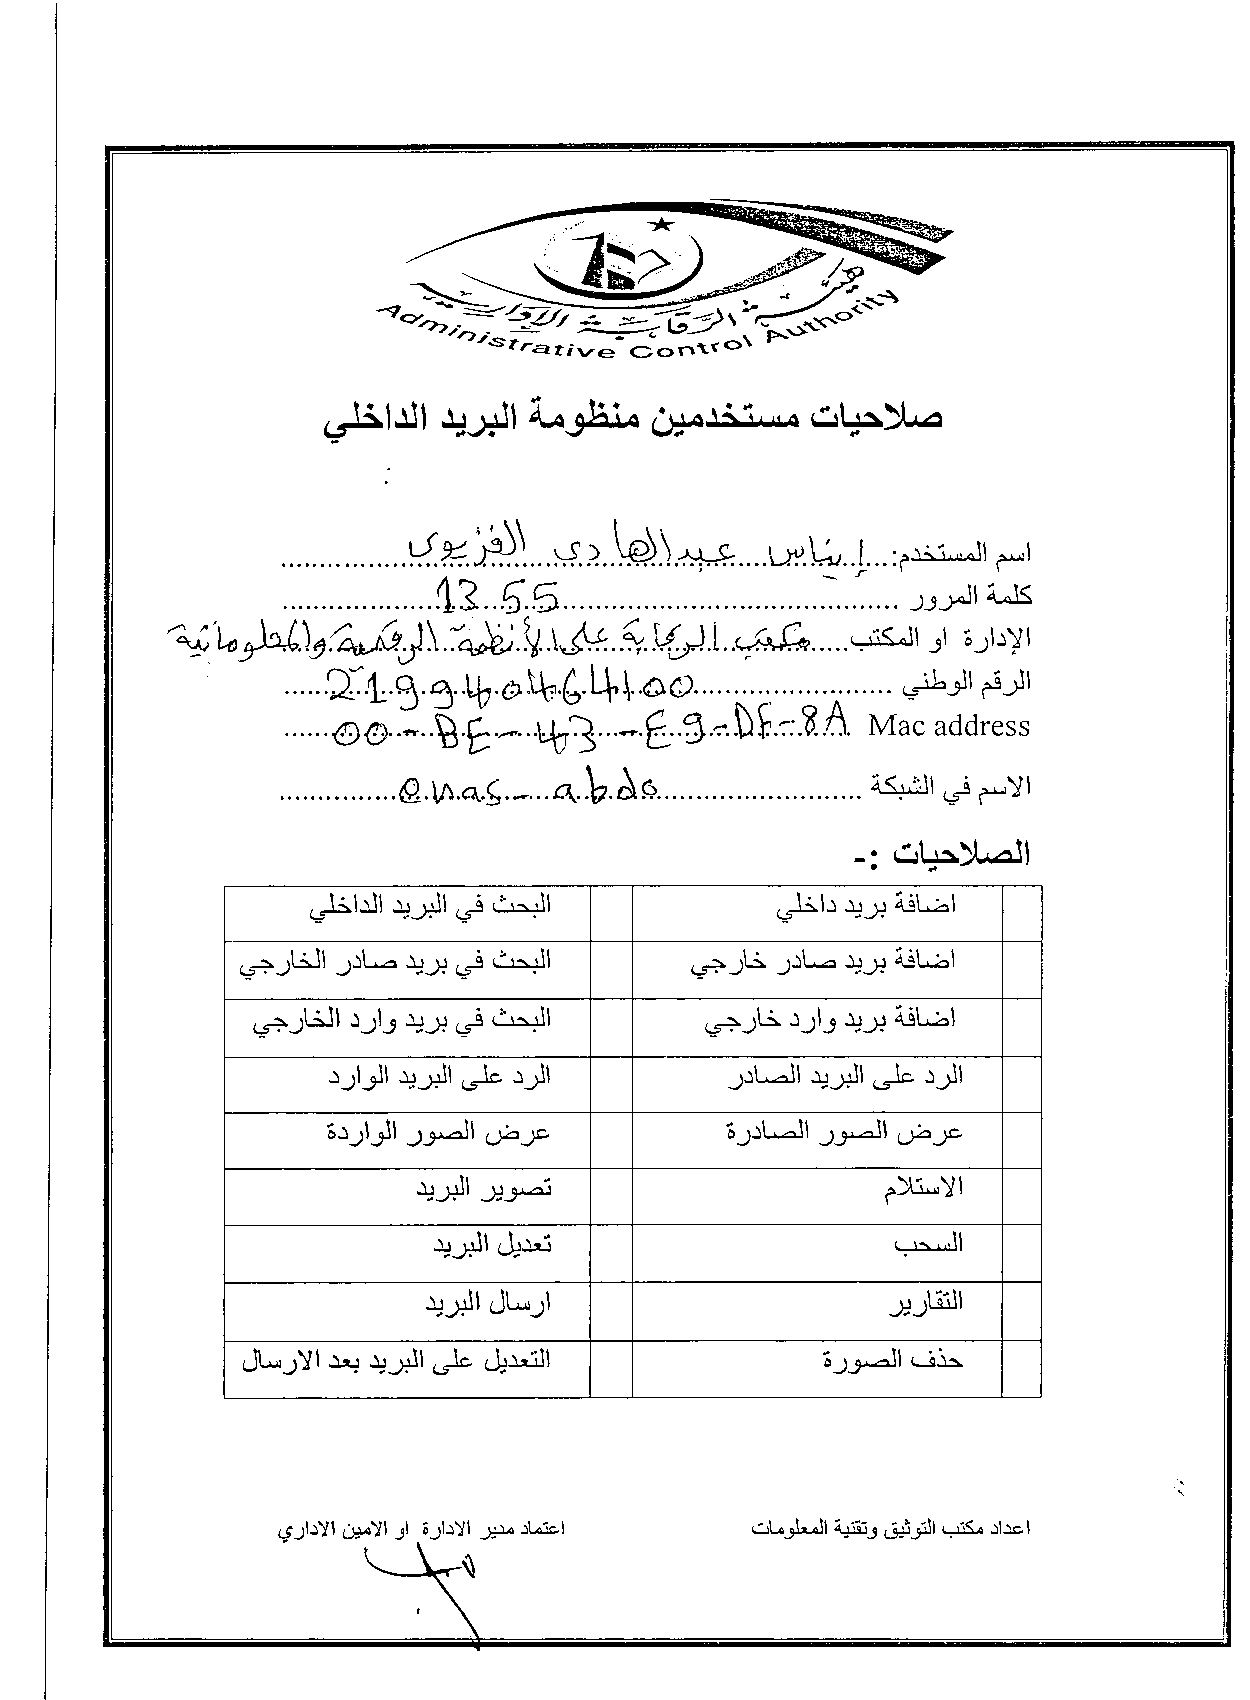 هيئة الرقابة الإدارية
Administrative Control Authority
صلاحيات مستخدمين منظومة البريد الداخلي
اسم المستخدم: إيناس عبدالهادي الفزيوي
كلمة المرور 1355
الإدارة او المكتب مكتب الرقابة على الأنظمة الرقمية والمعلوماتية
الرقم الوطني 219940464100
Mac address 00-BE-43-E9-DF-8A
الاسم في الشبكة enas-abdo
الصلاحيات :-
اضافة بريد داخلي البحث في البريد الداخلي
اضافة بريد صادر خارجي البحث في بريد صادر الخارجي
اضافة بريد وارد خارجي البحث في بريد وارد الخارجي
الرد على البريد الصادر الرد على البريد الوارد
عرض الصور الصادرة عرض الصور الواردة
الاستلام تصوير البريد
السحب تعديل البريد
التقارير ارسال البريد
حذف الصورة التعديل على البريد بعد الارسال
اعداد مكتب التوثيق وتقنية المعلومات اعتماد مدير الادارة او الامين الاداري